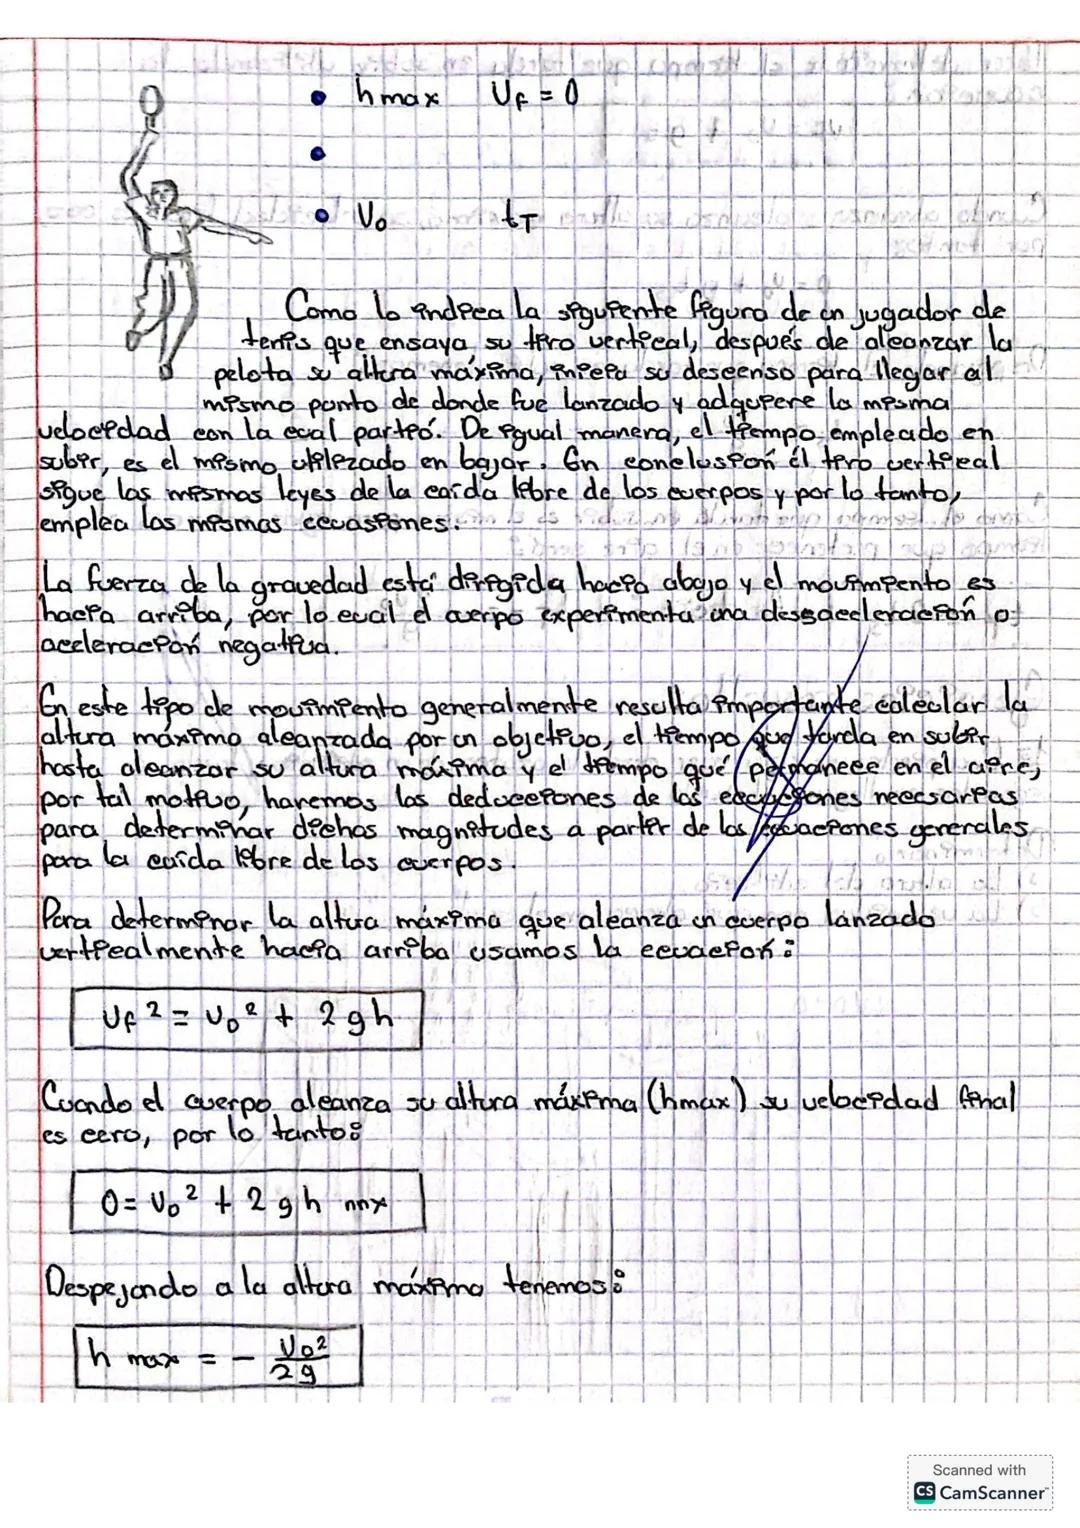 hmax Vf = 0
Vo tT
Como lo indica la siguiente figura de un jugador de
tenis que ensaya su tiro vertical, después de alcanzar la
pelota su altura máxima, inicia su descenso para llegar al
mismo punto de donde fue lanzado y adquiere la misma
velocidad con la cual partió. De igual manera, el tiempo empleado en
subir, es el mismo utilizado en bajar. En conclusión él tiro vertical
sigue las mismas leyes de la caída libre de los cuerpos y por lo tanto,
emplea las mismas ecuasiones.
La fuerza de la gravedad está dirigida hacia abajo y el movimiento es
hacia arriba, por lo cual el cuerpo experimenta una dessaceleración o
aceleración negativa.
En este tipo de movimiento generalmente resulta importante calcular la
altura máxima alcanzada por un objetivo, el tiempo que tarda en subir
hasta alcanzar su altura máxima y el tiempo qué permanece en el aire,
por tal motivo, haremos las deducciones de las ecuaciones necesarias
para determinar dichas magnitudes a partir de las ecuaciones generales
para la caída libre de los cuerpos.
Para determinar la altura máxima que alcanza un cuerpo lanzado
verticalmente hacia arriba usamos la ecuación:
Vf² = Vo² + 2gh
Cuando el cuerpo alcanza su altura máxima (hmax) su velocidad final
es cero, por lo tanto:
0 = Vo² + 2gh max
Despejando a la altura máxima tenemos:
h max = - Vo²/2g
Scanned with
CS CamScanner